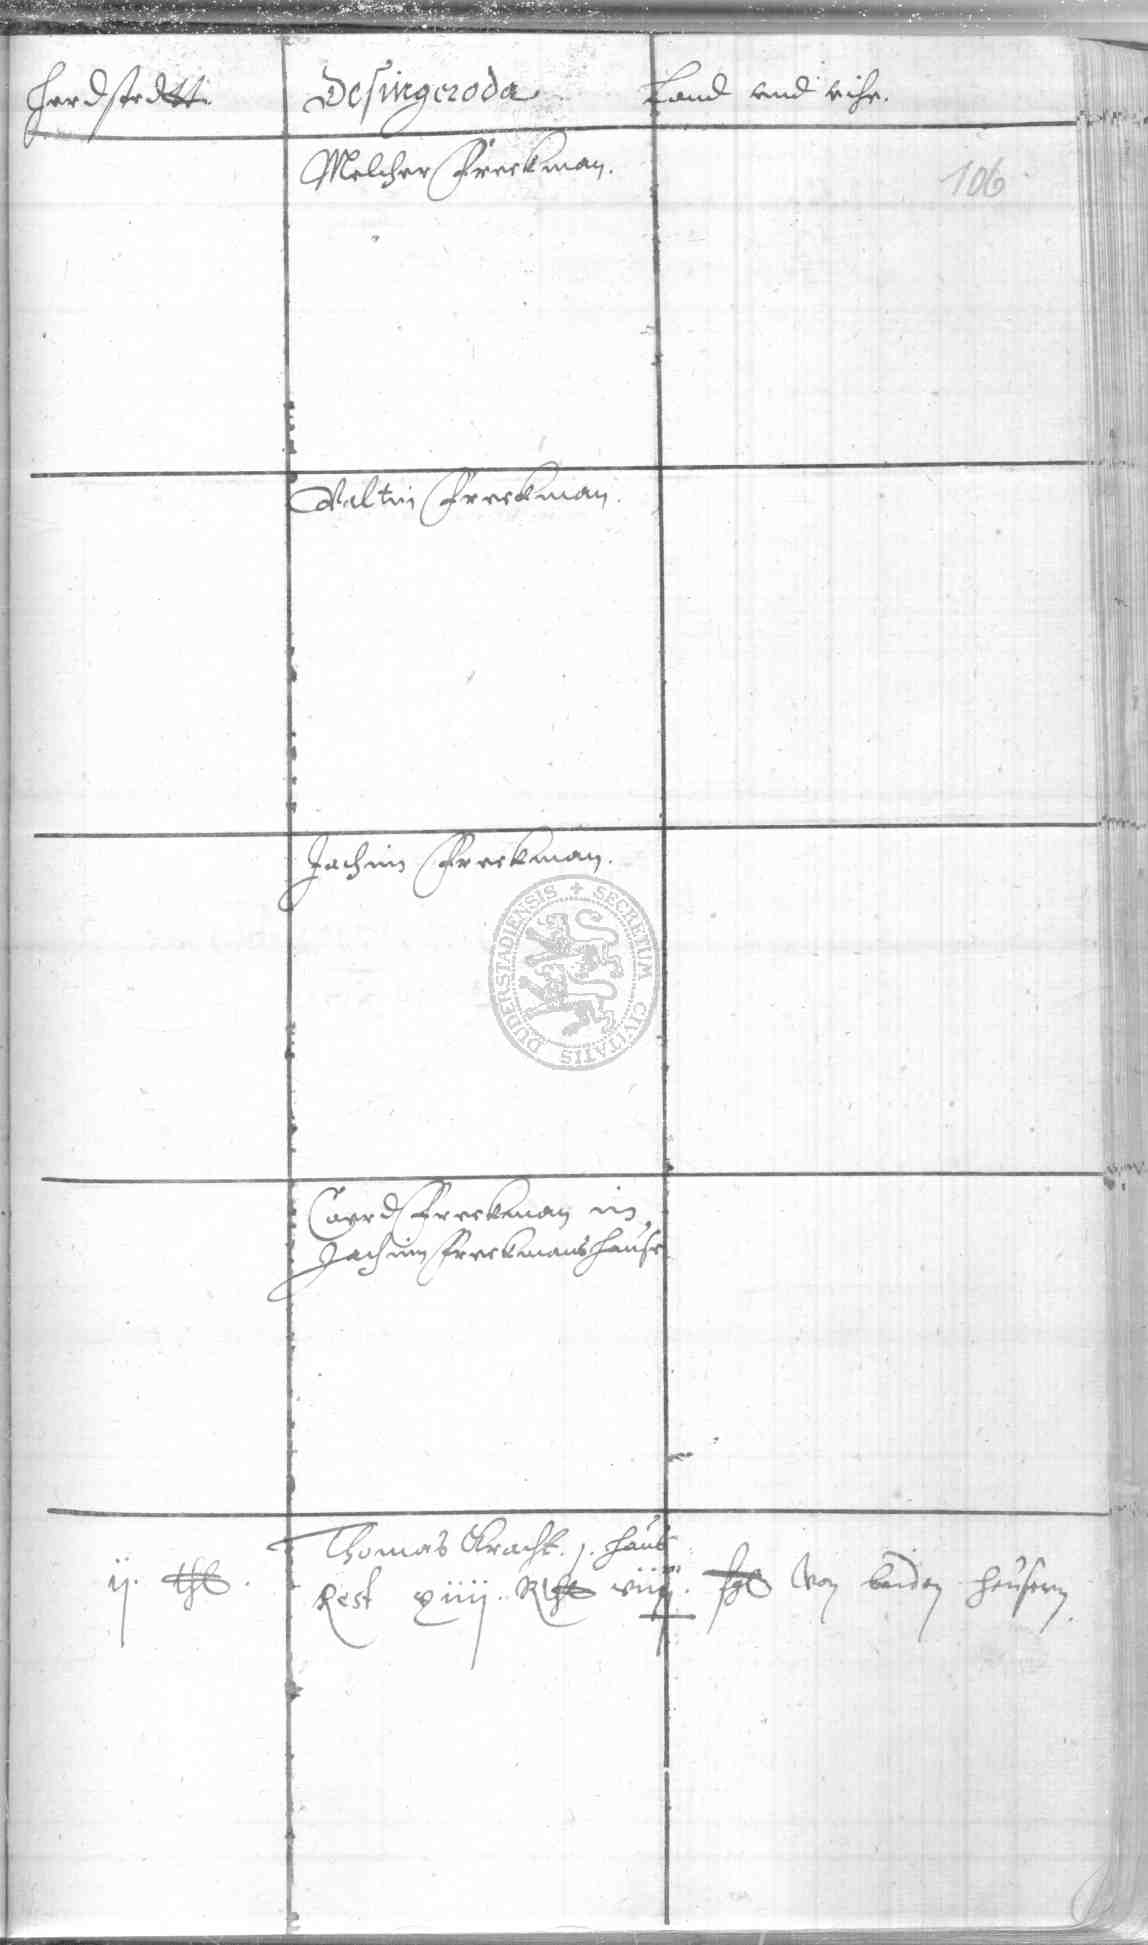 Herdstedtt. Desingeroda Land und viehe.
106
Melcher Freckman.
Valtin Freckman.
Jachim Freckman.
SECRETUM CIVITATIS DUDERSTADIENSIS
Coerd Freckman in
Jachim Freckmans hause
Thomas Kracht. j. haus
ij. thl. Rest xiiij. Rthl viiij. ßgl von beiden heusern